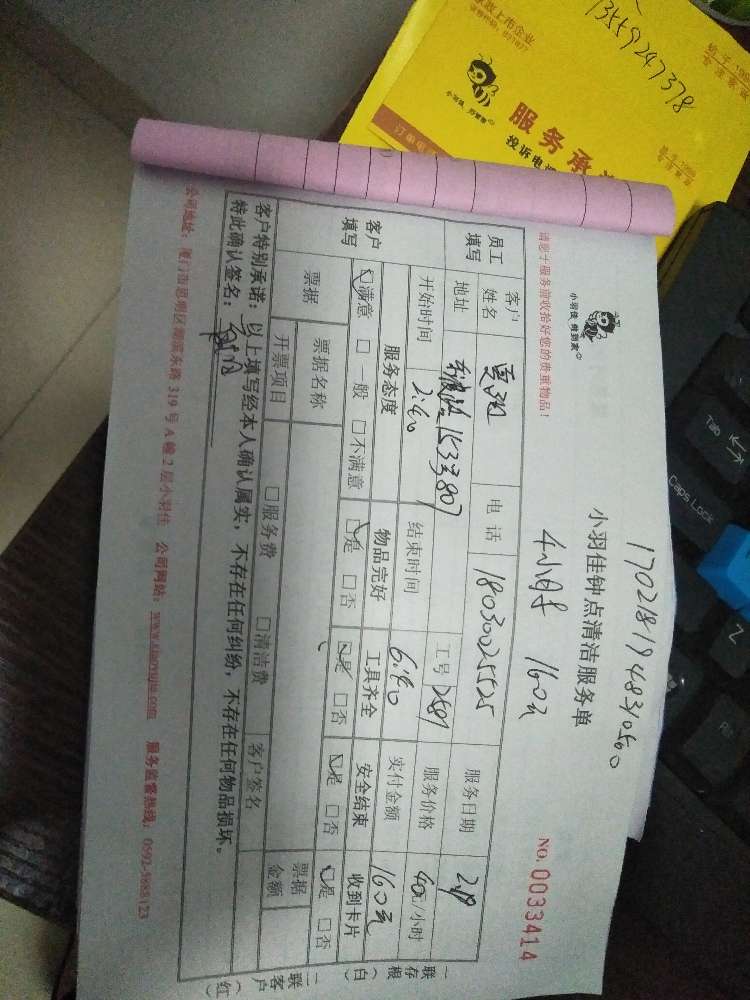 13559247378
家政上市企业
小羽佳 好管家
服务承
投诉电
订单电
请您于服务前收拾好您的贵重物品！
小羽佳 做到家
1702181948310500
小羽佳钟点清洁服务单
4小时 160元
NO. 0033414
员工填写
客户姓名
电话 18030025525
服务日期
地址
153号807
工号 2589
服务价格 40元/小时
客户填写
开始时间 2:40
结束时间 6:40
实付金额 160元
服务态度 物品完好 工具齐全 安全结束 收到卡片
☑满意 □一般 □不满意 ☑是 □否 ☑是 □否 ☑是 □否 ☑是 □否
票据 票据名称
开票项目 □服务费 □清洁费 客户签名 票据金额
客户特别承诺：以上填写经本人确认属实，不存在任何纠纷，不存在任何物品损坏。
特此确认签名：
公司地址：厦门市思明区湖滨东路319号A幢2层小羽佳 公司网站：www.xiaoyujia.com 服务监督热线：0592-5888123
一联存根（白）
二联客户（红）
Tab
Caps Lock
Z
Alt